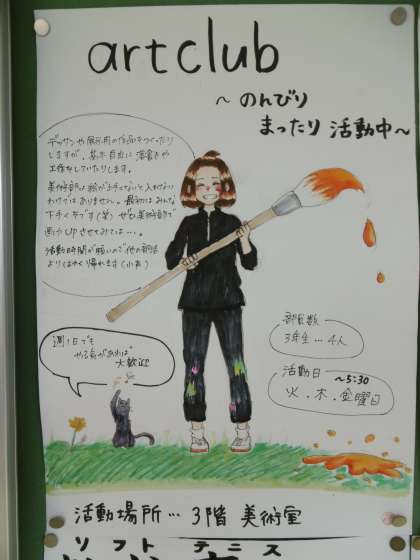 artclub
～ のんびり
まったり 活動中～
デッサンや展示用の作品をつくったり
しますが、基本自由に落書きや
工作をしていたりします。
美術部は絵が上手くないと入れない
わけではありません。最初はみんな
下手くそです(笑) ぜひ美術部で
画力UPさせてみては…。
活動時間が短いので他の部活
よりはやく帰れます(小声)
週1日でも
やる気があれば
大歓迎
部員数
3年生…4人
活動日 ～5:30
火・木・金曜日
活動場所…3階 美術室
ソフト テニス